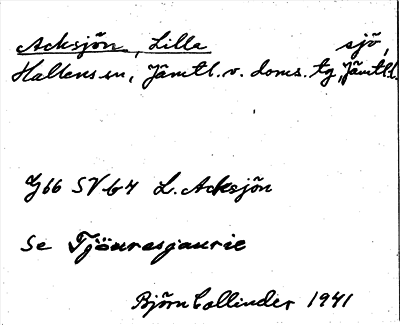 Acksjön, Lilla sjö,
Hallens sn, Jämtl. v. doms. tg, Jämtl. l.
G66 SV b4 L. Acksjön
Se Tjöuresjaurie
Björn Collinder 1941